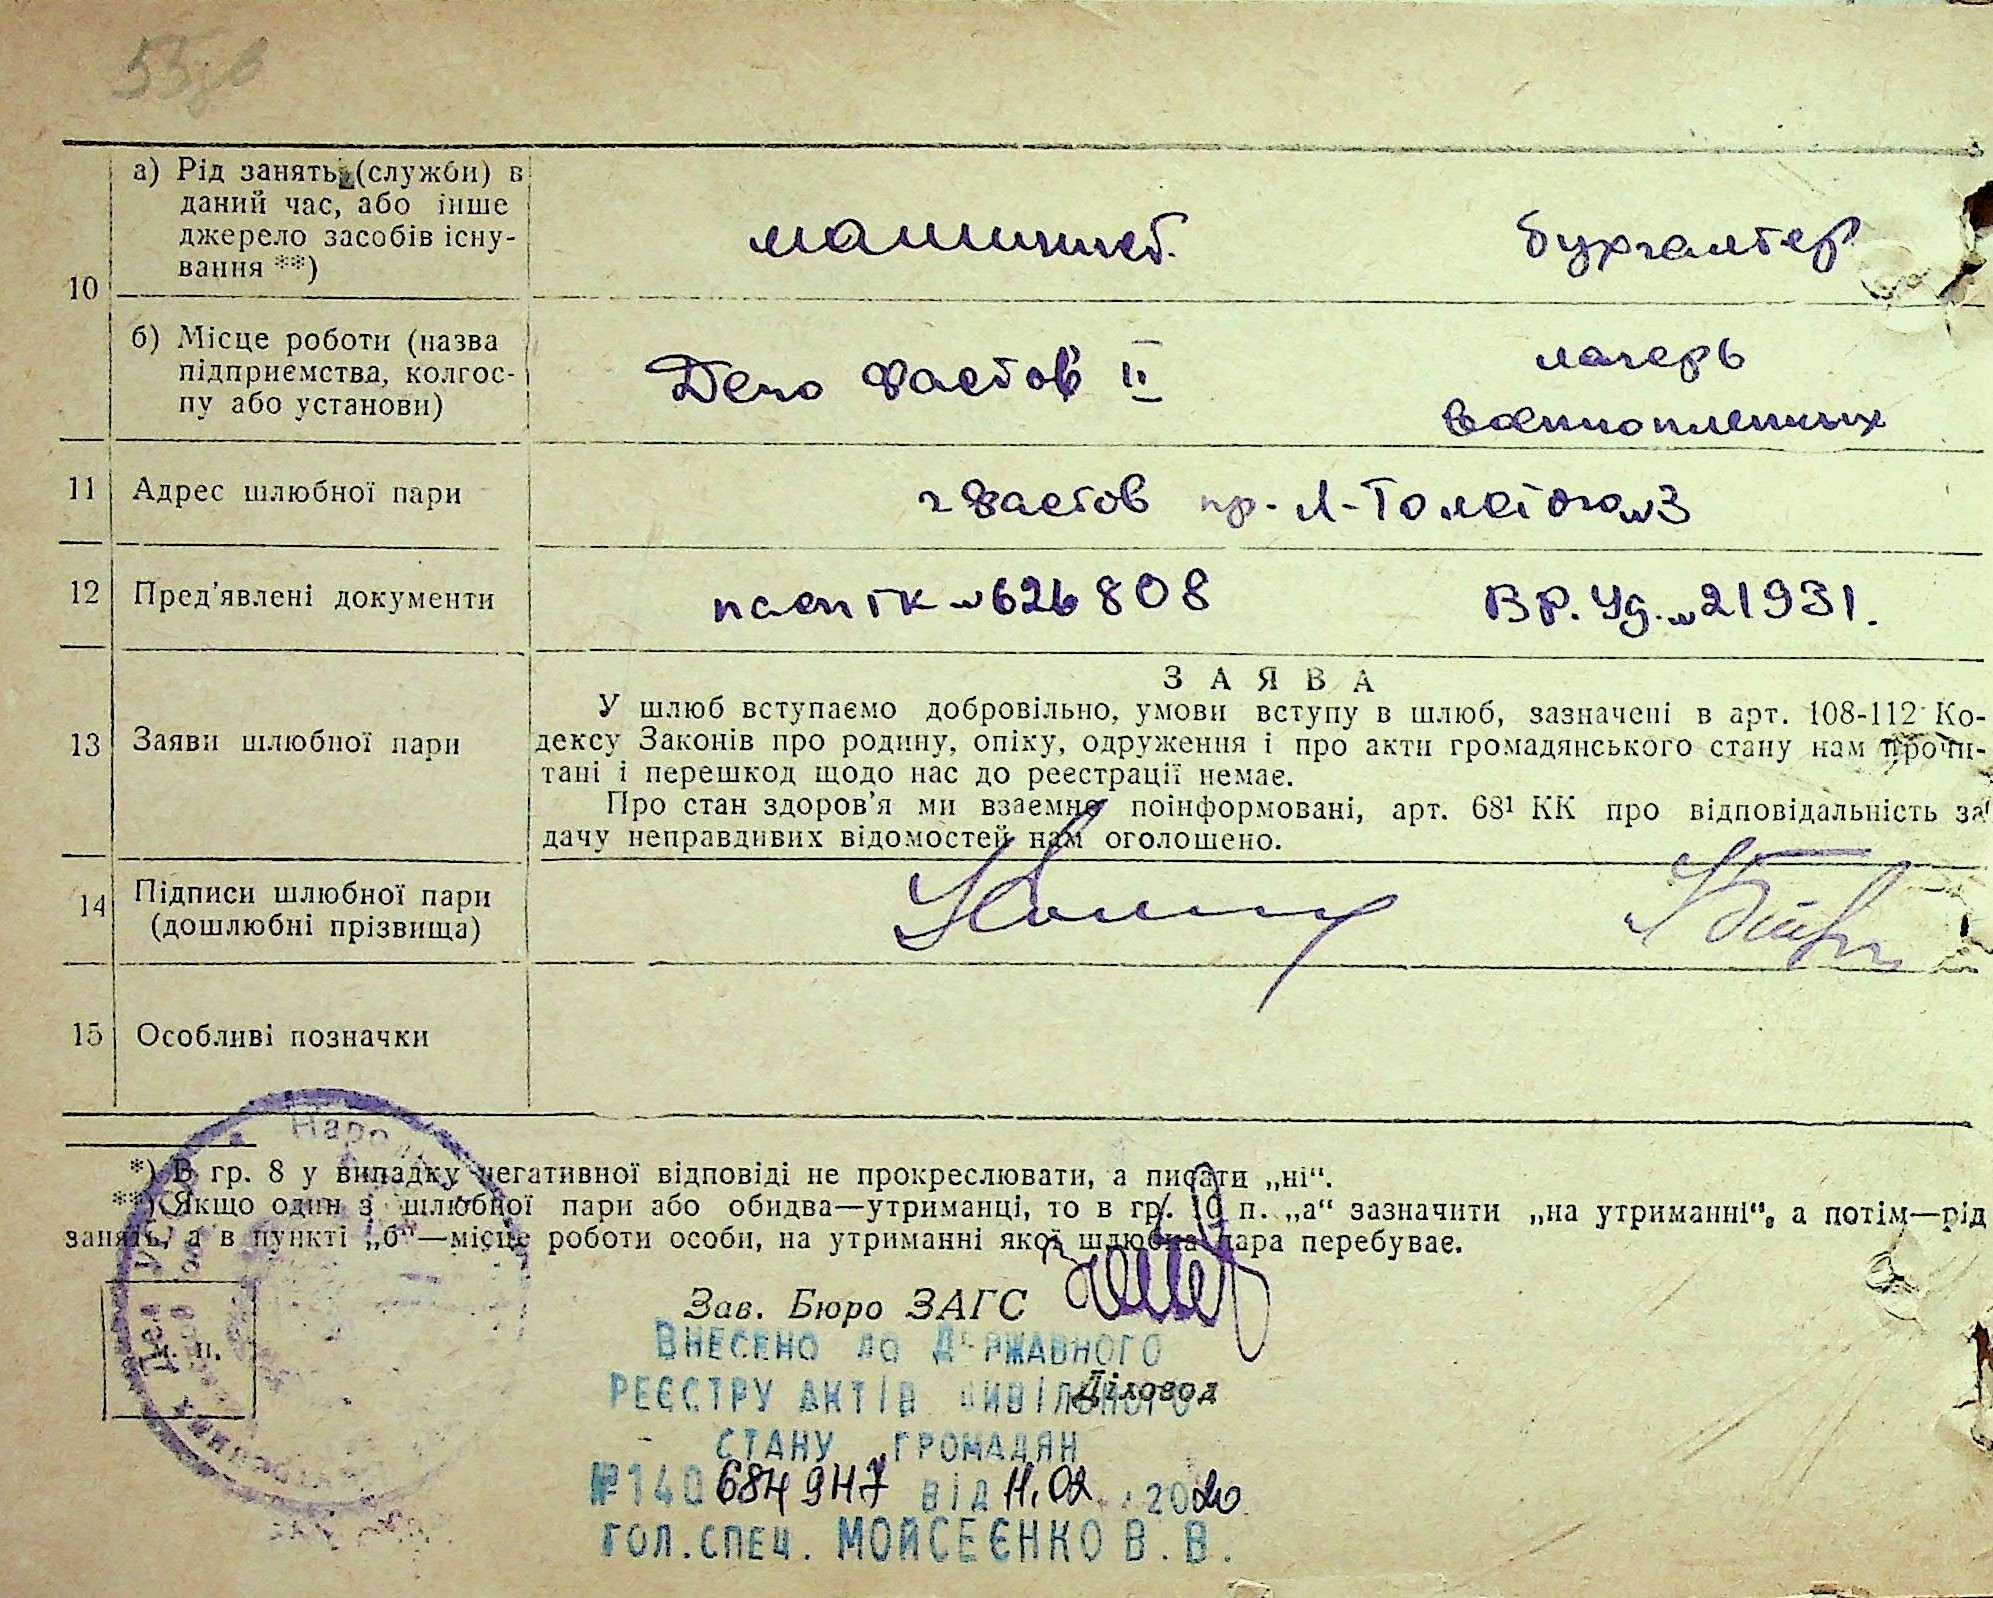 10
а) Рід занять (служби) в
даний час, або інше
джерело засобів існу-
вання **)
машинист.
бухгалтер
б) Місце роботи (назва
підприємства, колгос-
пу або установи)
Депо Фастов II
лагерь
военнопленных
11 Адрес шлюбної пари
г Фастов пр-Л-Толстого №3
12 Пред'явлені документи
пасп ГК №626808
ВР. Уд. №21931.
13 Заяви шлюбної пари
ЗАЯВА
У шлюб вступаємо добровільно, умови вступу в шлюб, зазначені в арт. 108-112 Ко-
дексу Законів про родину, опіку, одруження і про акти громадянського стану нам прочи-
тані і перешкод щодо нас до реєстрації немає.
Про стан здоров'я ми взаємно поінформовані, арт. 68¹ КК про відповідальність за
дачу неправдивих відомостей нам оголошено.
14 Підписи шлюбної пари
(дошлюбні прізвища)
15 Особливі позначки
*) В гр. 8 у випадку негативної відповіді не прокреслювати, а писати „ні“.
**) Якщо один з шлюбної пари або обидва—утриманці, то в гр. 10 п. „а“ зазначити „на утриманні“, а потім—рід
занять, а в пункті „б“—місце роботи особи, на утриманні якої шлюбна пара перебуває.
Зав. Бюро ЗАГС
м. п.
ВНЕСЕНО ДО ДЕРЖАВНОГО
Діловод
РЕЄСТРУ АКТІВ ЦИВІЛЬНОГО
СТАНУ ГРОМАДЯН
№140 684 947 від 11.02.2020
ГОЛ.СПЕЦ. МОЙСЕЄНКО В.В.